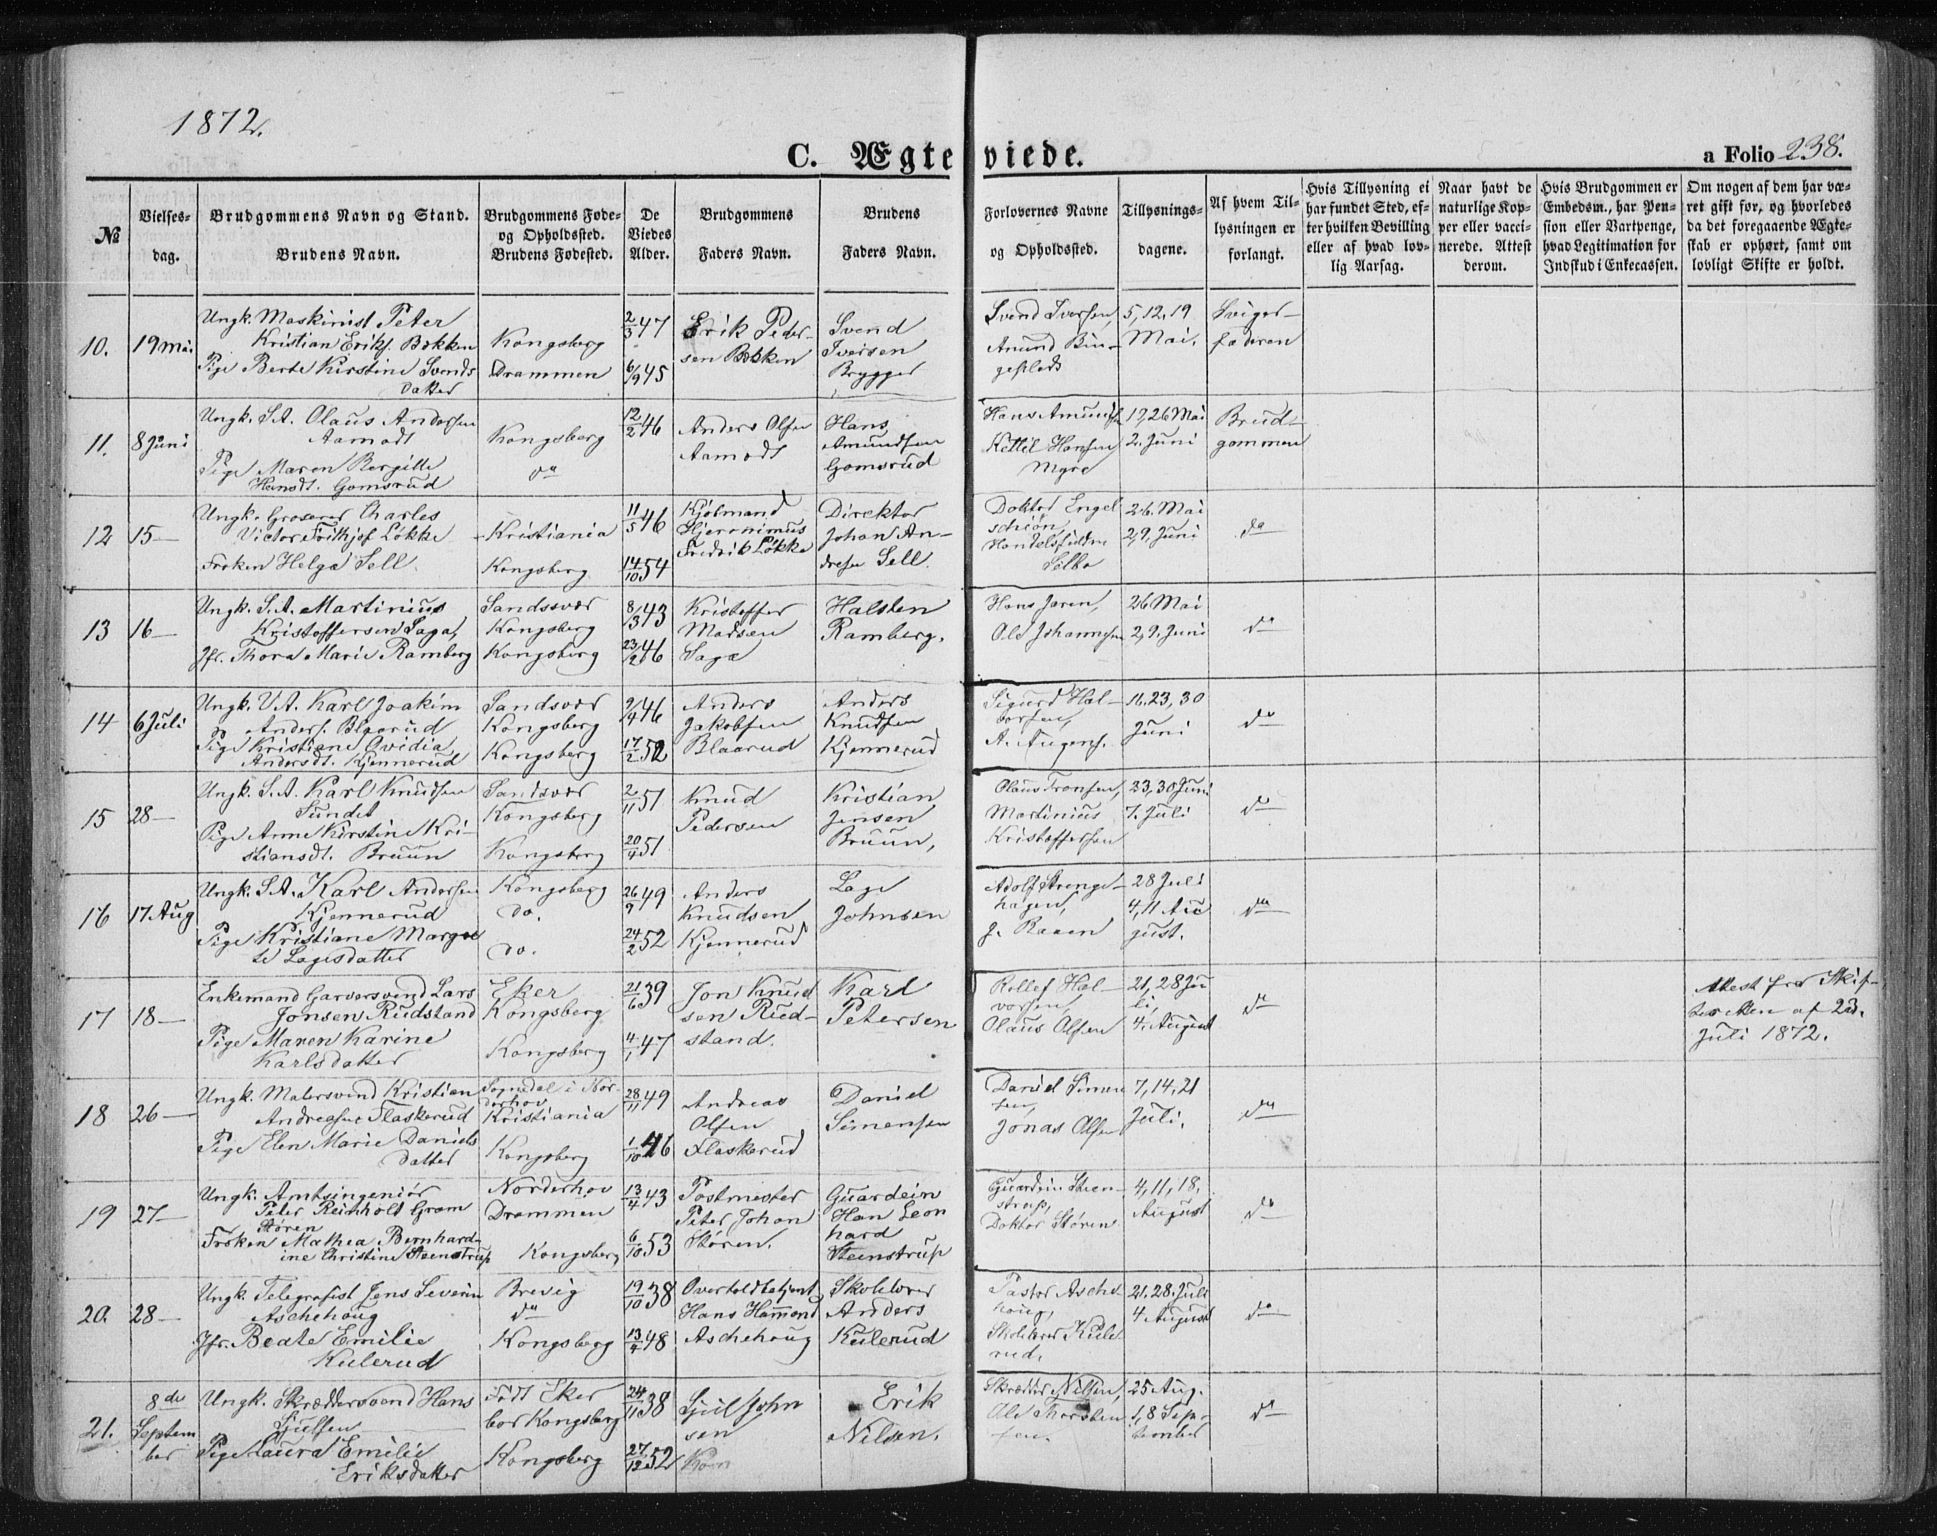 1872.
C. Ægteviede.
a Folio 238.
№
Vielses-
dag.
Brudgommens Navn og Stand.
Brudens Navn.
Brudgommens Føde-
og Opholdssted.
Brudens Fødested.
De
Viedes
Alder.
Brudgommens
Faders Navn.
Brudens
Faders Navn.
Forlovernes Navne
og Opholdssted.
Tillysnings-
dagene.
Af hvem Til-
lysningen er
forlangt.
Hvis Tillysning ei
har fundet Sted, ef-
ter hvilken Bevilling
eller af hvad lov-
lig Aarsag.
Naar havt de
naturlige Kop-
per eller vacci-
nerede. Attest
derom.
Hvis Brudgommen er
Embedsm., har Pen-
sion eller Vartpenge,
hvad Legitimation for
Indskud i Enkecassen.
Om nogen af dem har væ-
ret gift før, og hvorledes
da det foregaaende Ægte-
skab er ophørt, samt om
lovligt Skifte er holdt.
10.
19 Mai
Ungk. Maskinist Peter
Kristian Eriks. Bokken
Pige Berte Kirstine Svends
datter
Kongsberg
Drammen
2/3 47
6/9 45
Erik Peder-
sen Bokken
Svend
Iversen
Brygger
Svend Iversen,
Anund Bin-
geplads
5, 12, 19
Mai.
Sviger-
faderen
11.
8 Juni
Ungk. S.A. Olaus Andersen
Aamodt
Pige Maren Bergitte
Hansdt. Gomsrud
Kongsberg
do
12/2 46
Anders Olsen
Aamodt
Hans
Amundsen
Gomsrud
Hans Amunds
Kettil Hansen
Myre
19, 26 Mai
2. Juni
Brud-
gommen
12
15 —
Ungk. Groserer Charles
Victor Frithjof Løkke
Frøken Helga Sell.
Kristiania
Kongsberg
11/5 46
14/10 54
Kjøbmand
Hjeronimus
Fredrik Løkke
Direktør
Johan An-
dresen Sell.
Doktor Engel
schiøn,
26 Mai
2, 9. Juni
do
13
16 —
Ungk. S.A. Martinius
Kristoffersen Saga,
Jfr. Thora Marie Ramberg
Sandsvær
Kongsberg
Kongsberg
8/3 43
23/2 46
Kristoffer
Madsen
Saga
Halsten
Ramberg.
Hans Jaren,
Ole Johannesen
26 Mai
2, 9. Juni
do
14
6 Juli
Ungk. V.A. Karl Joakim
Anders. Blaarud
Pige Kristiane Ovidia
Andersdt. Kjennerud
Sandsvær
Kongsberg
Kongsberg
2/4 46
17/2 52
Anders
Jakobsen
Blaarud
Anders
Knudsen
Kjennerud
Sigurd Hal-
vorsen,
16, 23, 30
Juni
do
15
28 —
Ungk. S.A. Karl Knudsen
Sundet
Pige Anne Kirstine Kri-
stiansdt. Bruun
Sandsvær
Kongsberg
Kongsberg
2/11 51
20/4 51
Knud
Pedersen
Kristian
Jensen
Bruun,
Olaus Fransen,
Martinius
Kristoffersen
23, 30 Juni
7. Juli
do
16
17 Aug
Ungk. S.A. Karl Andersen
Kjennerud
Pige Kristiane Margre
te Lagesdatter
Kongsberg
do.
do.
26/9 49
24/2 52
Anders
Knudsen
Kjennerud
Lage
Johnsen
Adolf Strenge-
hagen,
J. Raaen
28 Juli
4, 11 Au
gust.
do
17
18 —
Enkemand Garversvend Lars
Jonsen Rudstand
Pige Maren Karine
Karlsdatter
Eker
Kongsberg
Kongsberg
21/6 39
4/1 47
Jon Knud
sen Rud-
stand.
Karl
Petersen
Rollef Hal-
vorsen,
Olaus Olsen
21, 28 Ju
li,
4. August
do
Attest fra Skif-
teretten af 23.
Juli 1872.
18
26 —
Ungk. Malersvend Kristian
Andreasen Flaskerud
Pige Elen Marie Daniels
datter
Sogndal i Nor-
derhov
Kristiania
Kongsberg
28/11 49
1/10 46
Andreas
Olsen
Flaskerud
Daniel
Simensen
Daniel Simen
sen,
Jonas Olsen
7, 14, 21
Juli.
do
19
27 —
Ungk. Amtsingeniør
Peter Reinholt Gram
Støren
Frøken Mathea Bernhard-
ine Christine Steenstrup
Norderhov
Drammen
Kongsberg
13/4 43
6/10 53
Postmester
Peter Johan
Støren.
Guardein
Han Leon
hard
Steenstrup
Guardein Steen-
strup,
Doktor Støren
4, 11, 18,
August
do
20.
28 —
Ungk. Telegrafist Jens Severin
Aschehoug
Jfr. Beate Emilie
Kulerud
Brevig
do
Kongsberg
19/10 38
13/4 48
Overtoldbetjent
Hans Hammond
Aschehoug
Skolelærer
Anders
Kulerud
Pastor Asche
houg,
Skolelærer Kule
rud,
21, 28 Juli
4 August
do
21.
8de
Septem
ber
Ungk. Skræddersvend Hans
Sjulsen
Pige Laura Emilie
Eriksdatter
Født Eker
bor Kongsberg
Kongsberg
24/11 38
27/12 52
Sjul John
sen
Erik
Nilsen.
Skrædder Nilsen,
Ole Thorsten
sen.
25 Aug.
1, 8 Sep-
tember
do